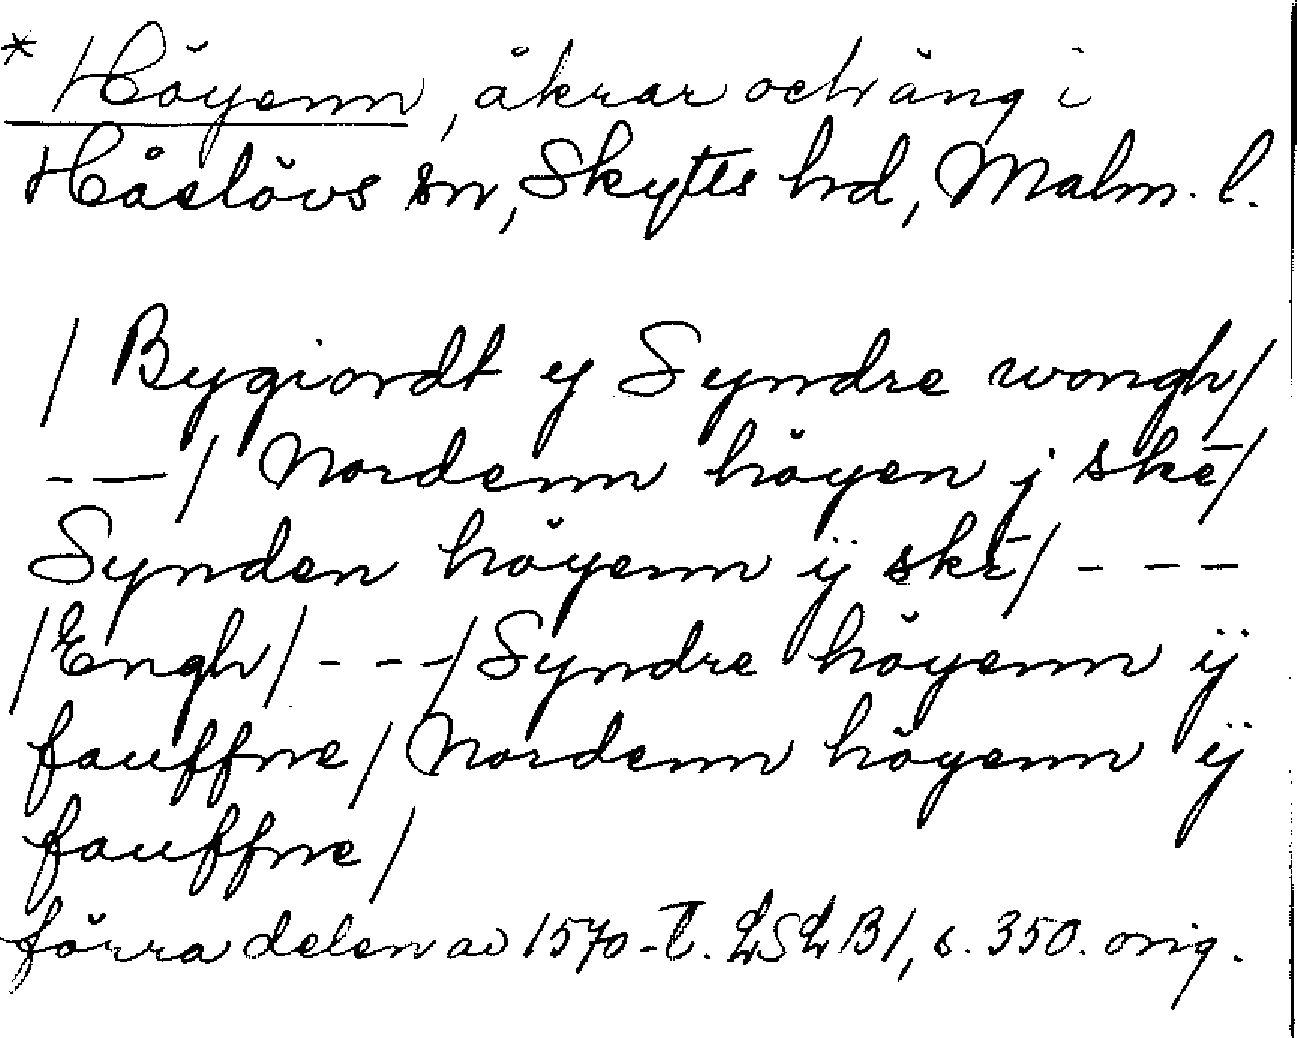 * Höyenn, åkrar och äng i
Håslövs sn, Skytts hd, Malm. l.
/ Bygiordt y Syndre wongh/
- - - / Nordenn höyen j skē/
Synden höyenn ÿ skē/ - - -
/Engh/ - - -/ Syndre höyenn ÿ
fauffne / Nordenn höyenn ÿ
fauffne /
förra delen av 1570-t. LSLB1, s. 350. orig.